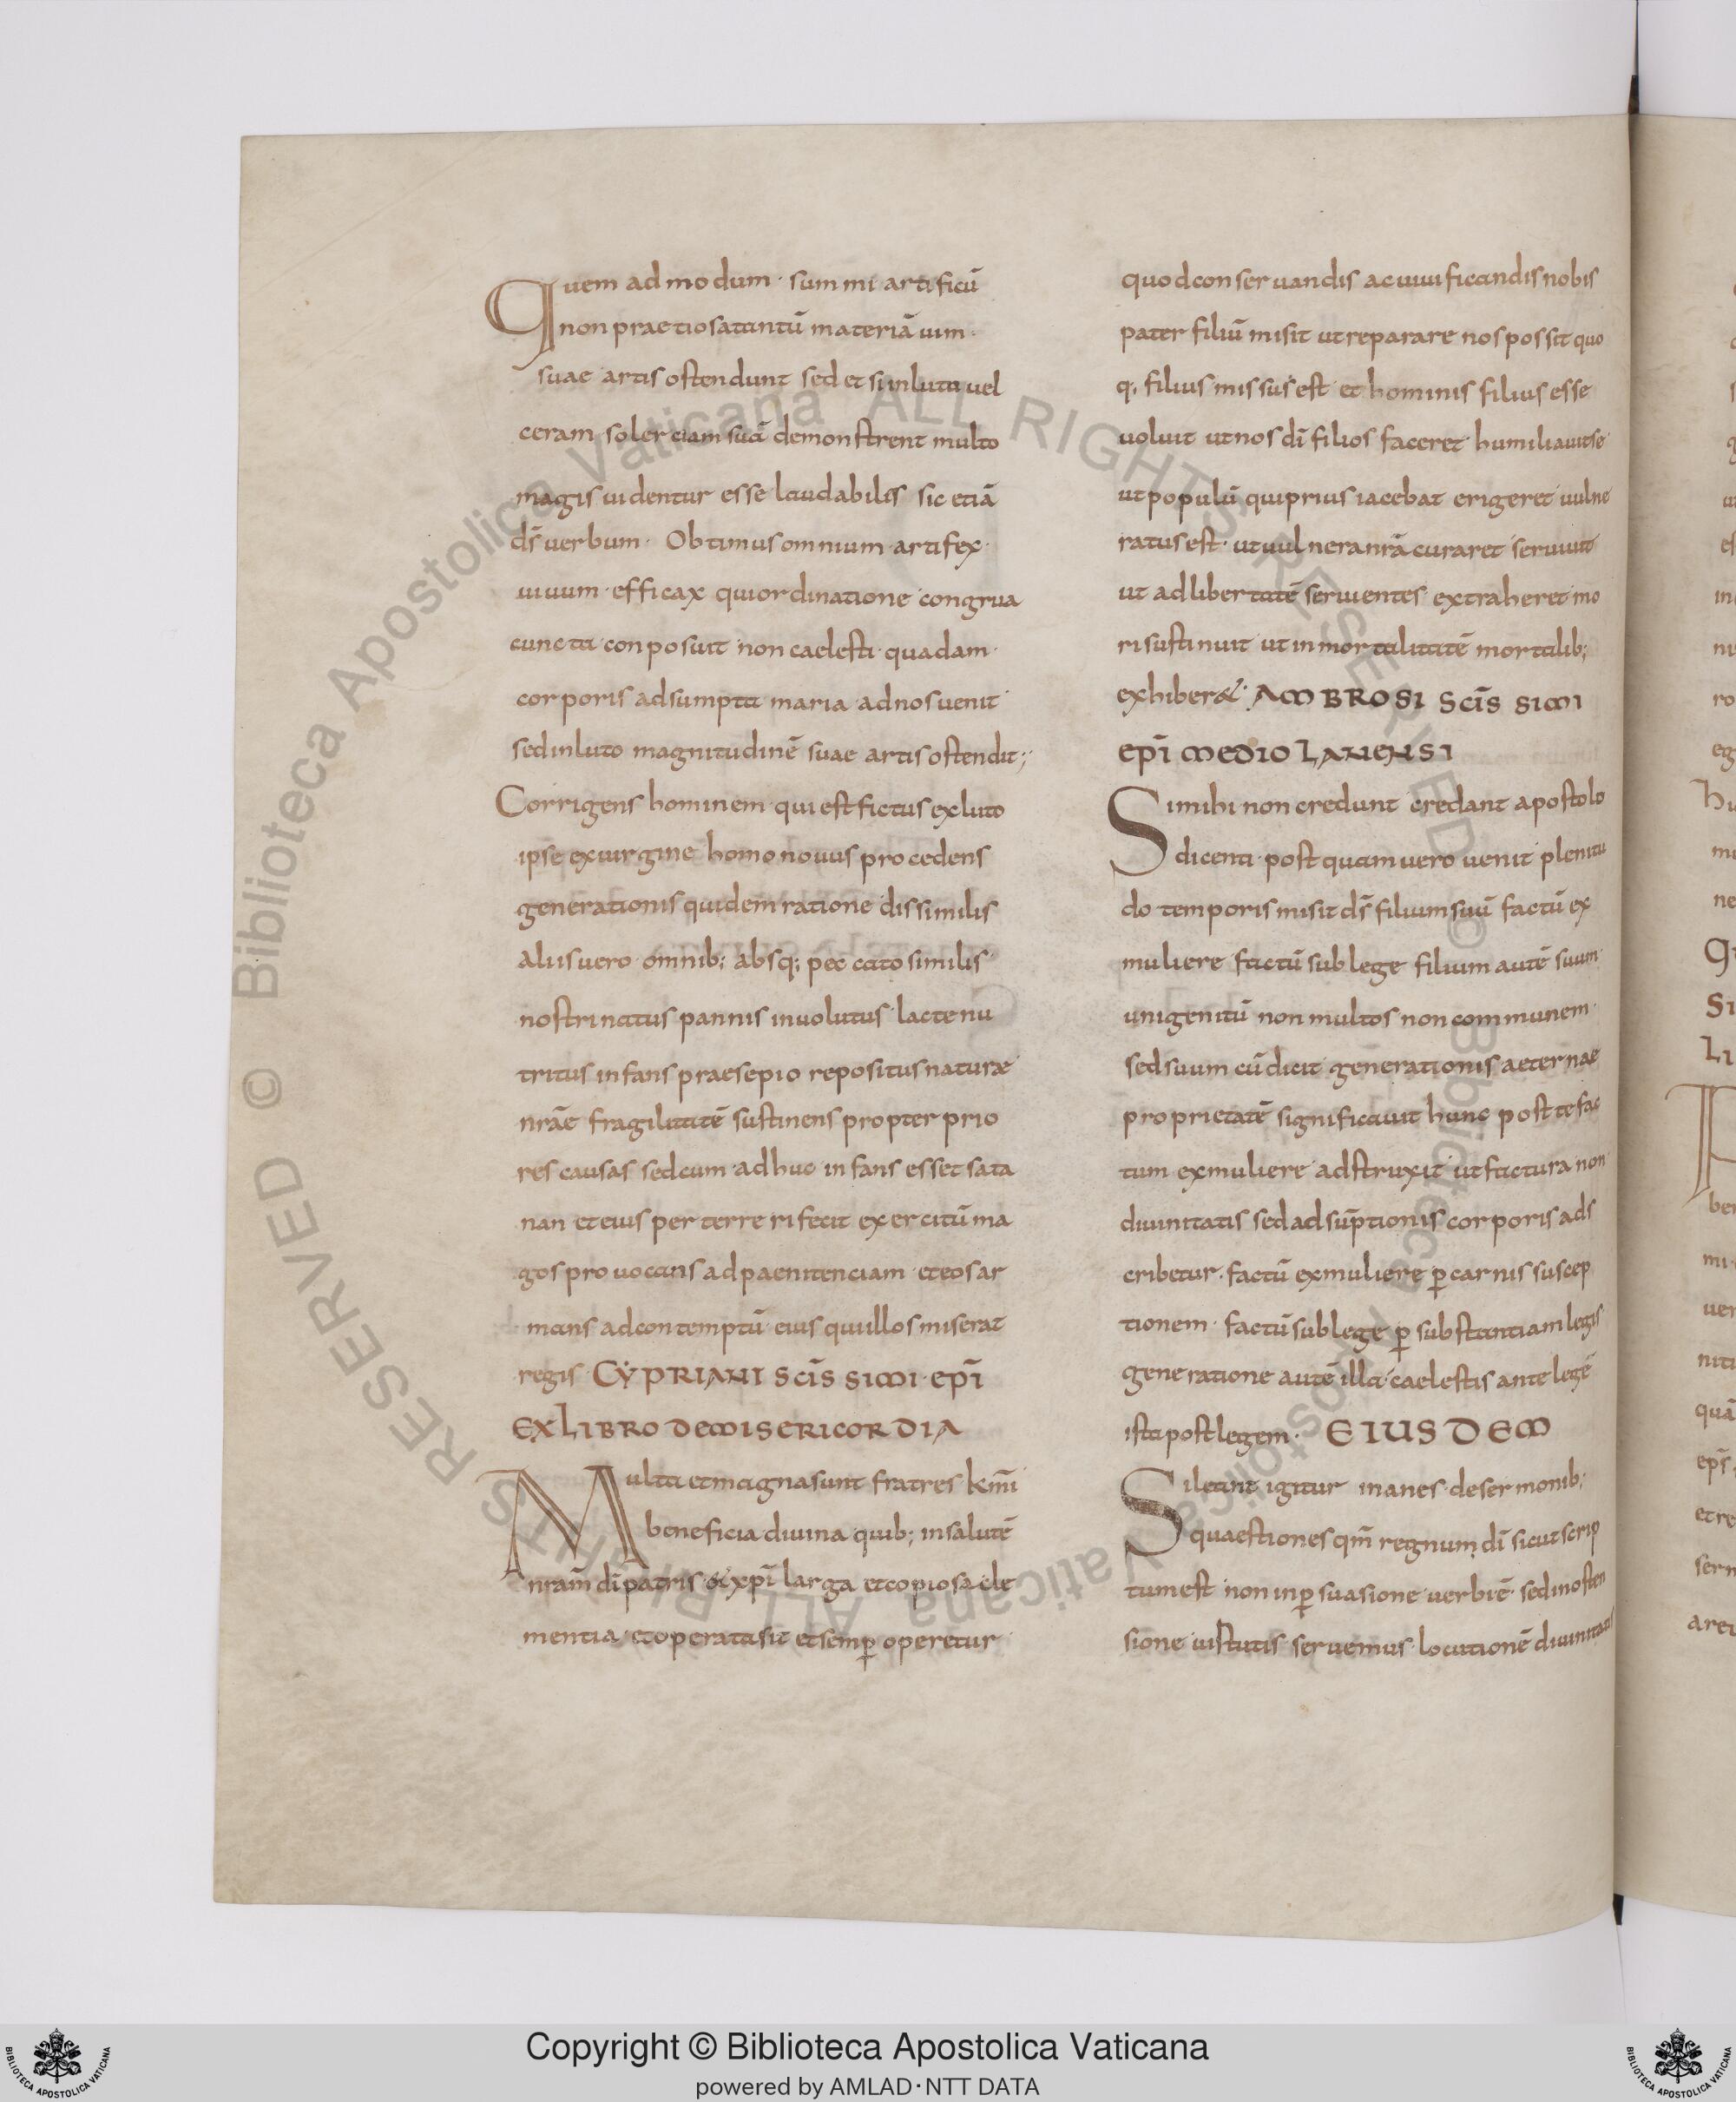 Quem ad modum· summi artificū
non praetiosatantū materiā uim·
suae artis ostendunt sed et si inluto uel
ceram solerciam suā demonstrent multo
magis uidentur esse laudabilis sic etiā
dś uerbum· Obtimus omnium artifex·
uiuum efficax qui ordinatione congrua
cuncta conposuit non caelesti quadam·
corporis adsumpta maria ad nos uenit·
sed inluto magnitudinē suae artis ostendit;
Corrigens hominem qui est fictus exluto
ipse exuirgine homo nouus procedens
generationis quidem ratione dissimilis
aliis uero omnib; absq; peccato similis
nostri natus pannis inuolutus lacte nu
tritus infans praesepio repositus naturae
nrāe fragilitatē sustinens propter prio
res causas sed cum adhuc infans esset sata
nan et eius perterreri fecit exercitū ma
gos prouocans ad paenitenciam et eos ar
mans ad contemptū eius qui illos miserat
regis CYPRIANI SCĪSSIMI EPĪ
EX LIBRO DE MISERICORDIA
Multa et magna sunt fratres kmī
beneficia diuina quib; in salutē
nram̄ dī patris & xpī larga et copiosa cle
mentia et operata sit et semp operetur
quod conseruandis ac uiuificandis nobis
pater filiū misit ut reparare nos possit quo
q; filius missus est et hominis filius esse
uoluit ut nos dī filios faceret humiliauit se
ut populū qui prius iacebat erigeret uulne
ratus est· ut uulnera nrā curaret seruiuit
ut ad libertatē seruientes extraheret mo
ri sustinuit ut inmortalitatē mortalib;
exhiber&· AMBROSI SCĪSSIMI
EPĪ MEDIOLANENSI
Si mihi non credunt credant apostolo
dicenti· postquam uero uenit plenitu
do temporis misit dś filium suū factū ex
muliere factū sub lege filium autē suum
unigenitū non multos non communem·
sed suum cū dicit generationis aeternae
proprietatē significauit hunc post te fac
tum ex muliere adstruxit ut factura non
diuinitatis sed adsūptionis corporis ads
cribetur· factū ex muliere p carnis suscep
tionem· factū sub lege p substantiam legis
generatione autē illa caelestis ante legē
ista post legem· EIUSDEM
Sileant igitur inanes de sermonib;
quaestiones qm̄ regnum dī sicut scrip
tum est non in p suasione uerbi ē sed in osten
sione uistutis seruemus locutionē diuinitatis